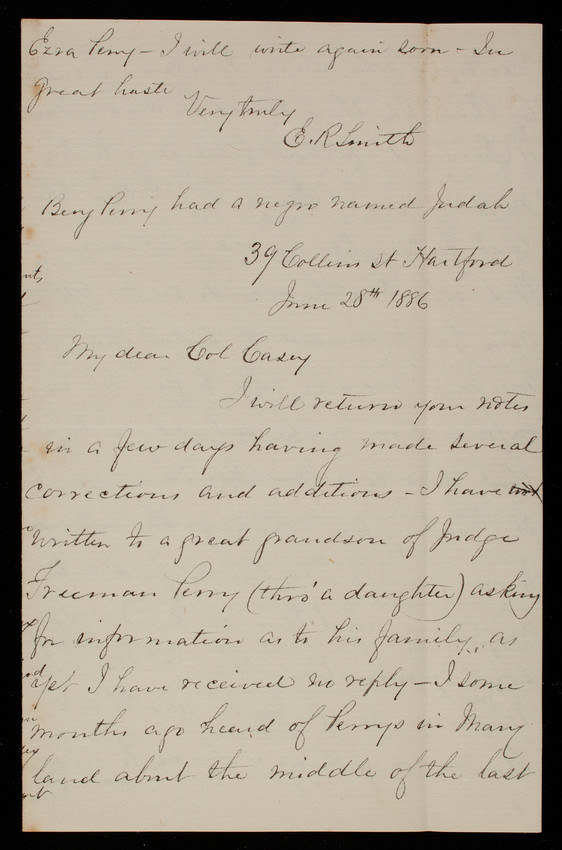 Ezra Perry – I will write again soon – In
great haste
Very truly
E. R Smith
Benj Perry had a negro named Judah
39 Collins St Hartford
June 28th 1886
My dear Col Casey
I will return your notes
in a few days having made several
corrections and additions – I have
written to a great grandson of Judge
Freeman Perry (thro' a daughter) asking
for information as to his family, as
yet I have received no reply – I some
months ago heard of Perrys in Mary
land about the middle of the last